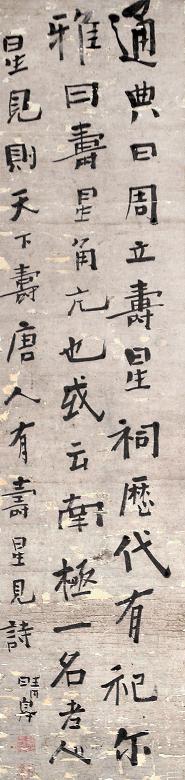 通典曰周立壽星祠歷代有祀尓
雅曰壽星角亢也或云南極一名老人
星見則天下壽唐人有壽星見詩